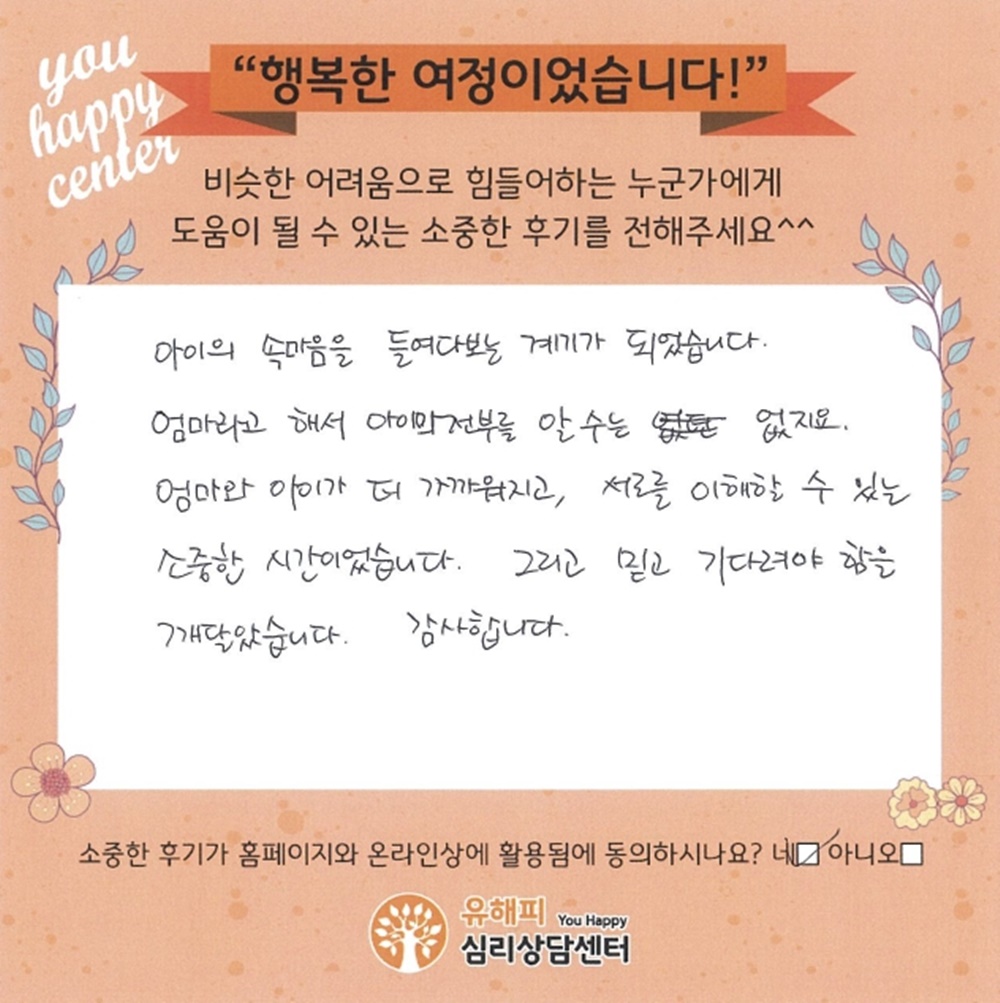 you
happy
center
“행복한 여정이었습니다!”
비슷한 어려움으로 힘들어하는 누군가에게
도움이 될 수 있는 소중한 후기를 전해주세요^^
아이의 속마음을 들여다보는 계기가 되었습니다.
엄마라고 해서 아이의전부를 알 수는 없지요.
엄마와 아이가 더 가까워지고, 서로를 이해할 수 있는
소중한 시간이었습니다. 그리고 믿고 기다려야 함을
깨달았습니다. 감사합니다.
소중한 후기가 홈페이지와 온라인상에 활용됨에 동의하시나요? 네☑ 아니오□
유해피 You Happy
심리상담센터